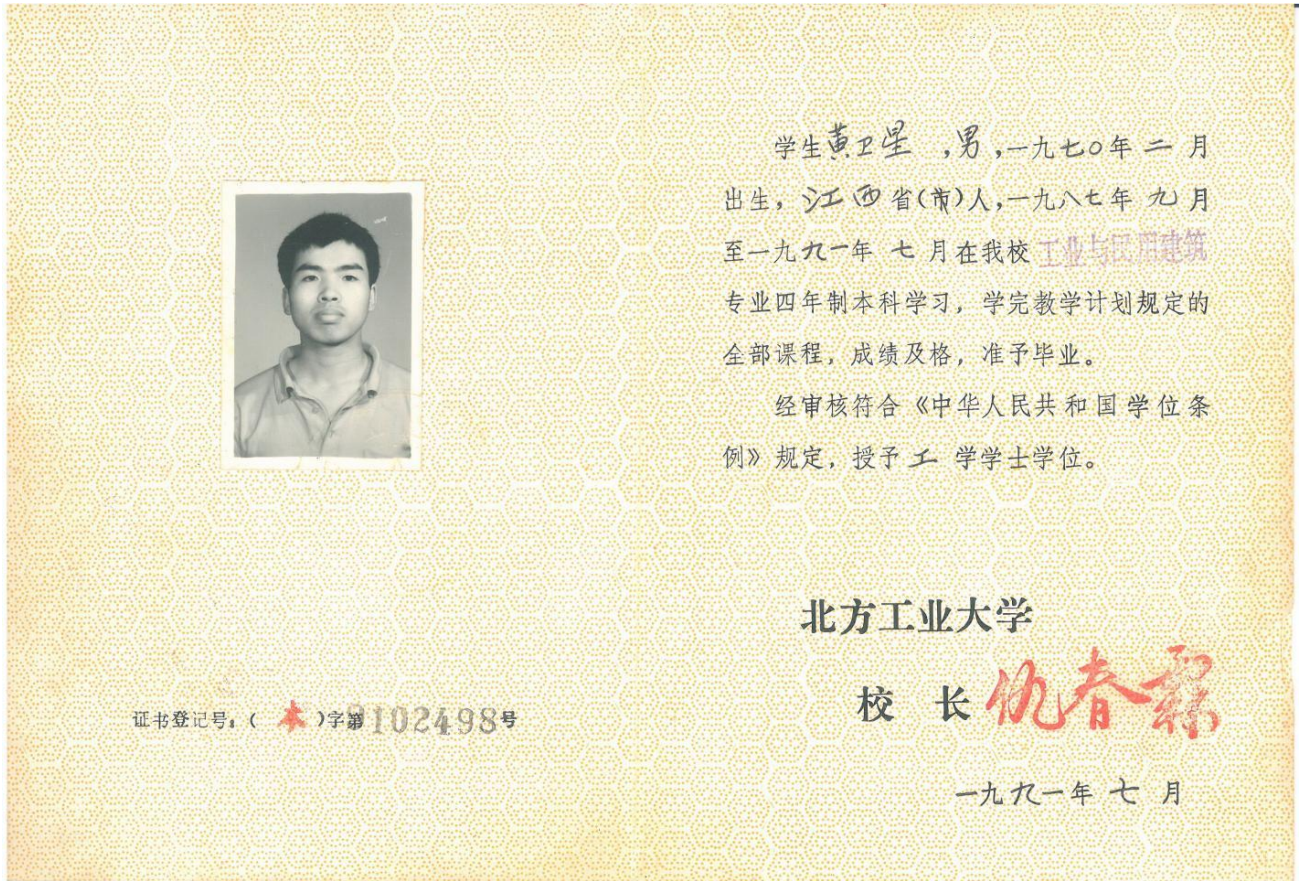 学生黄卫星,男,一九七〇年二月
出生,江西省(市)人,一九八七年九月
至一九九一年七月在我校工业与民用建筑
专业四年制本科学习,学完教学计划规定的
全部课程,成绩及格,准予毕业。
经审核符合《中华人民共和国学位条
例》规定,授予工学学士学位。
北方工业大学
校长仇春霖
一九九一年七月
证书登记号:(本)字第9102498号